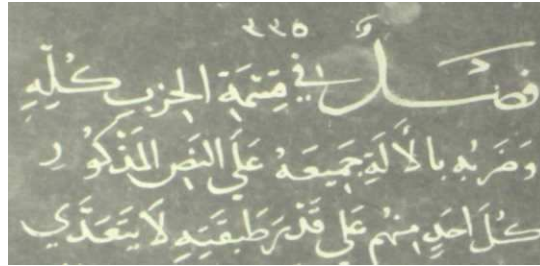 ٣٣٥
فصل في قتمة الحزب كله
وَضربه بالألة جميعه على النص المذكور
كل احد منهم على قدر طبقته لا يتعدي